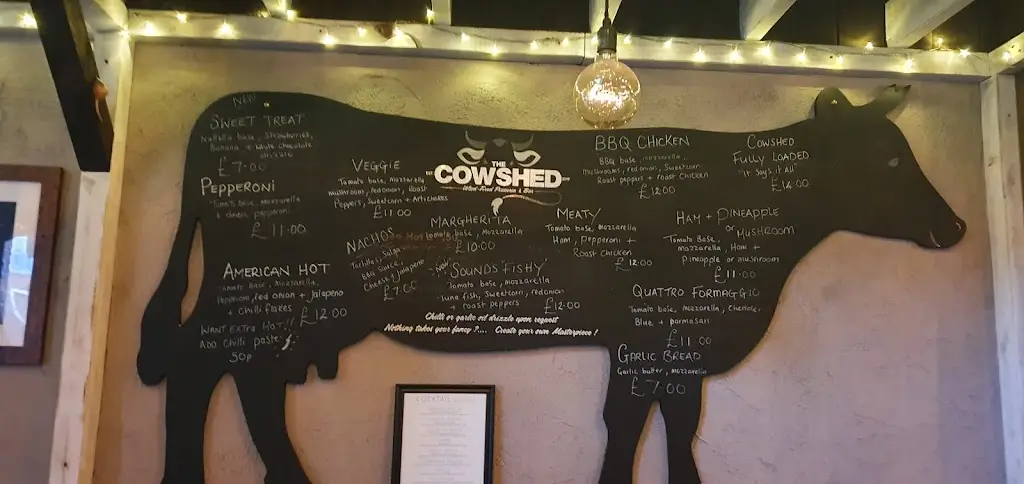 NEW
SWEET TREAT
Nutella base, Strawberries,
Banana + White chocolate
drizzle
£7.00
PEPPERONI
Tomato base, Mozzarella
+ pepperoni
£11.00
AMERICAN HOT
Tomato Base, Mozzarella,
Pepperoni, red onion + Jalapeno
+ Chilli flakes
£12.00
WANT EXTRA HOT!!
ADD CHILLI PASTE
50p
VEGGIE
Tomato base, Mozzarella
mushroom, red onion, Roast
Peppers, Sweetcorn + Artichokes
£11.00
NACHOS
Tortillas, Salsa
BBQ Sauce,
Cheese + Jalapeno
£7.00
THE
COWSHED
Wood-Fired Pizzeria & Bar
MARGHERITA
Tomato base, Mozzarella
£10.00
NEW
'SOUNDS FISHY'
Tomato base, mozzarella
Tuna fish, Sweetcorn, red onion
roast peppers
£12.00
Chilli or garlic oil drizzle upon request
Nothing takes your fancy?.... Create your own Masterpiece!
BBQ CHICKEN
BBQ base, mozzarella,
mushrooms, red onion, Sweetcorn
Roast peppers + roast Chicken
£12.00
MEATY
Tomato base, Mozzarella
Ham, Pepperoni +
Roast Chicken
£12.00
COWSHED
FULLY LOADED
"it Says it All"
£14.00
HAM + PINEAPPLE
or
MUSHROOM
Tomato Base,
mozzarella, Ham +
Pineapple or mushroom
£11.00
QUATTRO FORMAGGIO
Tomato base, Mozzarella, Cheddar,
Blue + parmesan
£11.00
GARLIC BREAD
Garlic butter, mozzarella
£7.00
COCKTAIL